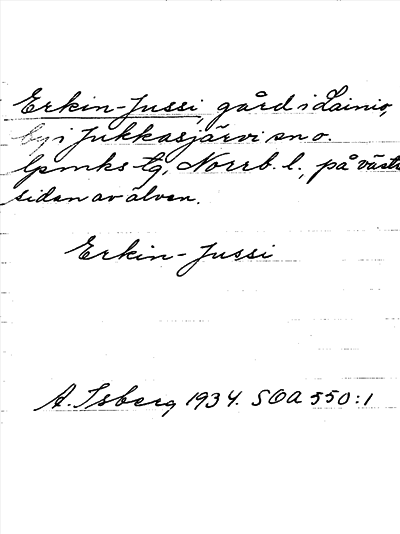 Erkin-Jussi, gård i Lainio,
by i Jukkasjärvi sn o.
lpmks tg, Norrb. l., på västr
sidan av älven.
Erkin-Jussi
A. Isberg 1934. SOA 550:1